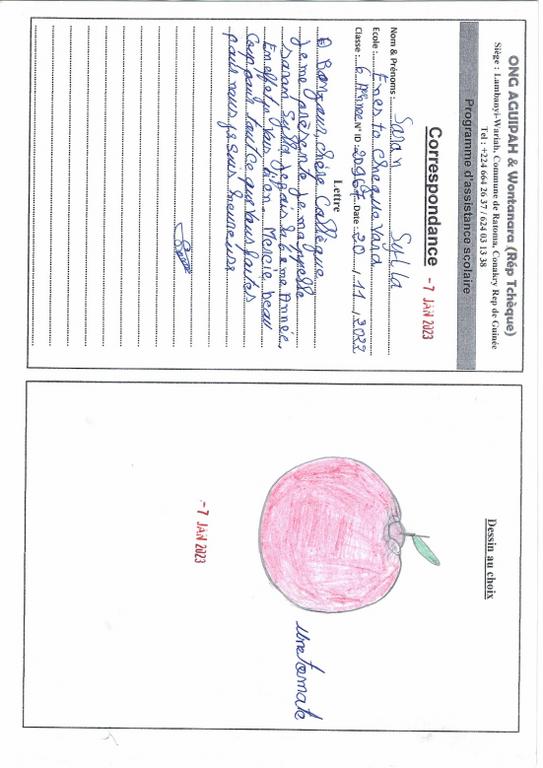 ONG AGUIPAH & Wontanara (Rép Tchèque)
Siège : Lambanyi-Wariah, Commune de Ratoma, Conakry Rep de Guinée
Tel : +224 664 26 37 / 624 03 13 38
Programme d'assistance scolaire
Correspondance
- 7 JAN 2023
Nom & Prénoms : Saran Sylla
Ecole : Ernesto Cheguevara
Classe : 6ème Année N° ID : 20967 Date : 20 / 11 / 2022
Lettre
Bonjour, chère Collègue
Je me présente Je m'appelle
saran Sylla Je fais la 6ème Année,
En effet je vais bien. Mercie beau
Coup pour tout ce que vous faites
pour nous je suis heureuse
Dessin au choix
une tomate
- 7 JAN 2023